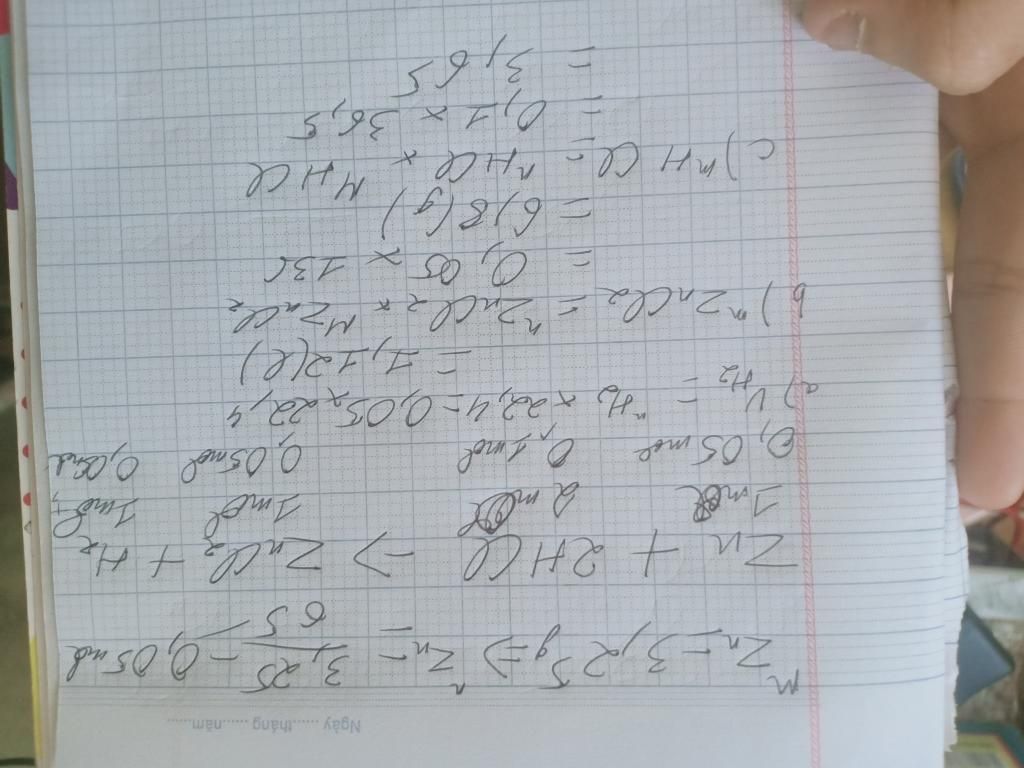 Ngày ......tháng ......năm......
mZn = 3,25g => nZn = 3,25/65 = 0,05mol
Zn + 2HCl -> ZnCl2 + H2
1mol 2mol 1mol 1mol
0,05mol 0,1mol 0,05mol 0,05mol
a) VH2 = nH2 x 22,4 = 0,05 x 22,4
= 1,12(l)
b) mZnCl2 = nZnCl2 x MZnCl2
= 0,05 x
= 6,8(g)
c) mHCl = nHCl x MHCl
= 0,1 x 36,5
= 3,65